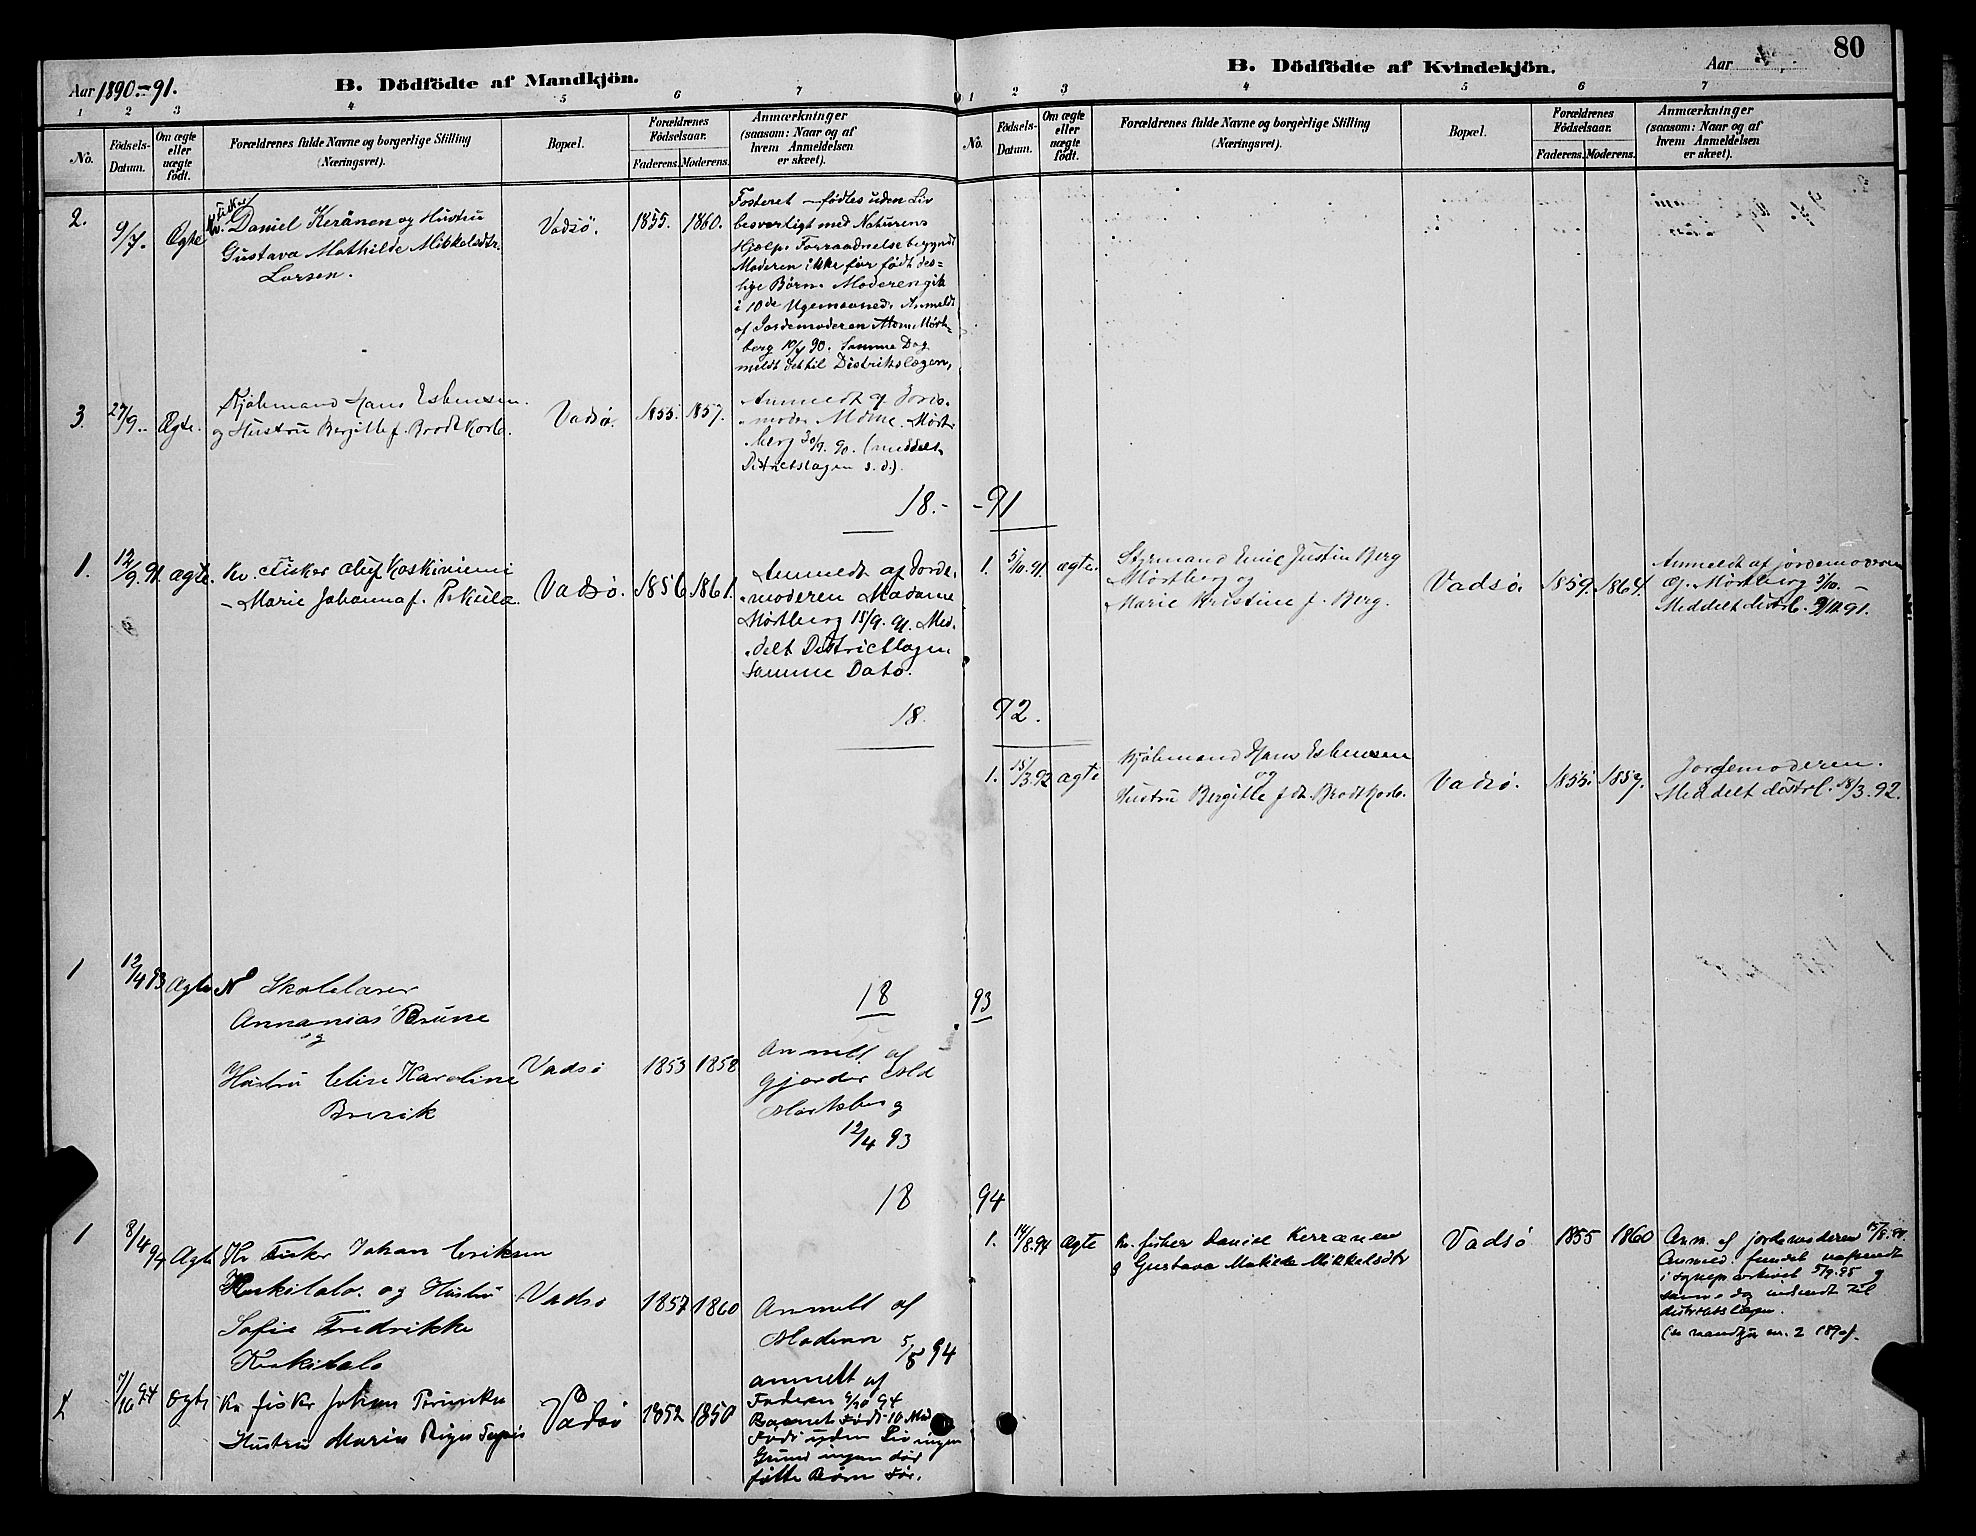 80
Aar 1890-91.
B. Dödfödte af Mandkjön.
1 2 3 4 5 6 7
No.
Födsels-Datum.
Om ægte eller uægte födt.
Forældrenes fulde Navne og borgerlige Stilling (Næringsvei).
Bopæl.
Forældrenes Födselsaar.
Faderens. Moderens.
Anmærkninger (saasom: Naar og af hvem Anmeldelsen er skeet).
2. 9/7. Ægte
Kv. Fisker
Daniel Keränen og Hustru
Gustava Mathilde Mikkelsdtr.
Larsen.
Vadsö. 1855. 1860.
Fosteret fødtes uden Liv
besværligt med Naturens
Hjælp. Forraadnelse begyndt
Moderen ikke før født des-
lige Børn. Moderen gik
i 10de Ugemaaned. Anmeldt
af Jordemoderen Mdme Mørt-
berg 10/7 90. Samme Dag
meldt det til Distriktslægen.
3. 27/9.. Ægte.
Kjøbmand Hans Esbensen
og Hustru Bergitte f. Brodtkorb.
Vadsø. 1855. 1857.
Anmeldt af Jorde-
moder Mdme. Mørt-
berg 30/9. 90. (meddelt
Districtslægen s. d.).
18.-
1. 12/9. 91. ægte.
Kv. Fisker Oluf Koskiniemi
- Marie Johanna f. Pekula.
Vadsø. 1856 1861.
Anmeldt af Jorde-
moderen Madame
Mørtberg 15/9. 91. Med-
delt Districtlægen
samme Dato.
18.
1 12/4 93 Ægte N Skolelærer
Annanias Brune
og
Hustru Elise Karoline
Brerik
Vadsø 1853 1858
18
Anmelt af
gjorder Md
Mortsberg
12/4 93
18
1 8/4 94 Ægte Kv Fisker Johan Eriksen
Keskitalo. og Hustru
Sofie Fredrikke
Keskitalo
Vadsø 1857 1860
Anmelt af
Moderen
5/5 94
2 7/10 94 ægte Kv fisker Johan
Hustru Maria
Vadsø 1852 1850
anmelt af
Faderen 9/10 94
Barnet Født 10 Md
Født uden Liv ingen
Grund ingen død
føtte Børn før.
B. Dödfödte af Kvindekjön.
Aar
1 2 3 4 5 6 7
No.
Födsels-Datum.
Om ægte eller uægte födt.
Forældrenes fulde Navne og borgerlige Stilling (Næringsvei).
Bopæl.
Forældrenes Födselsaar.
Faderens. Moderens.
Anmærkninger (saasom: Naar og af hvem Anmeldelsen er skeet).
-91
1. 5/10. 91. ægte.
Styrmand Emil Justin Berg
Mörtberg og
Marie Kristine f. Berg.
Vadsø. 1859. 1864.
Anmeldt af jordemoderen
Mörtberg 5/10.
Meddelt distrl. 9/10 91.
92.
1. 15/3. 92 ægte
Kjöbmand Hans Esbensen
og
Hustru Bergitte fdt. Brodtkorb.
Vadsø. 1855. 1857.
Jordemoderen.
Meddelt distrl. 18/3. 92.
93
94
1. 14/8. 94 Ægte
Kv. fisker Daniel Kerränen
& Gustava Matilde Mikkelsdtr
Vadsø 1855 1860
Anm. af jordemoderen 15/8. 94.
Anmed. fundet uafsendt
i sognep. arkivet 5/9. 95 og
samme dag indsendt til
distriktslægen.
(se mandkjøn nr. 2 1890).